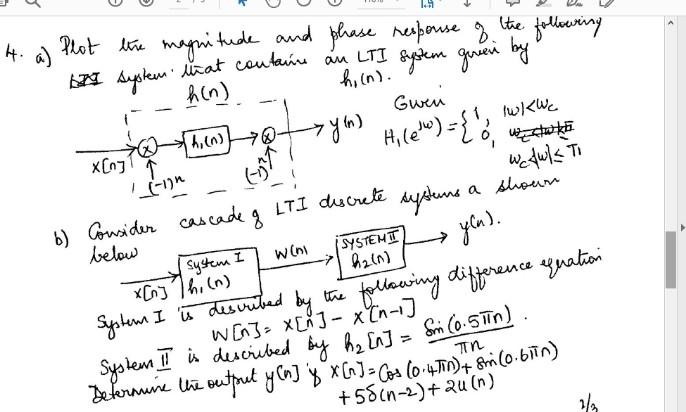 4. a) Plot the magnitude and phase response of the following
LTI system that contains an LTI system given by
h1(n).
h(n)
x[n] × h1(n) × y(n)
(-1)^n (-1)^n
Given
H1(e^jω) = { 1, |ω|<ωc
0, ωc<|ω|≤π
b) Consider cascade of LTI discrete systems a shown
below
x[n] System I h1(n) W(n) SYSTEM II h2(n) y(n).
System I is described by the following difference equation
W[n] = x[n] - x[n-1]
System II is described by h2[n] = Sin(0.5πn) / πn
Determine the output y[n] if x[n] = Cos(0.4πn) + Sin(0.6πn)
+ 5δ(n-2) + 2u(n)
2/3